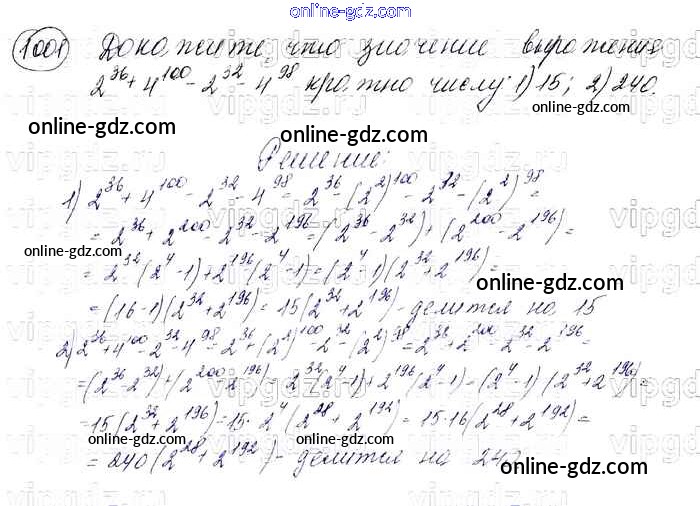 online-gdz.com
1001 Докажите, что значение выражения
2^36 + 4^100 - 2^32 - 4^98 кратно числу: 1) 15; 2) 240.
online-gdz.com online-gdz.com
Решение:
1) 2^36 + 4^100 - 2^32 - 4^98 = 2^36 - (2^2)^100 - 2^32 - (2^2)^98 =
= 2^36 + 2^200 - 2^32 - 2^196 = (2^36 - 2^32) + (2^200 - 2^196) =
online-gdz.com
= 2^32 (2^4 - 1) + 2^196 (2^4 - 1) = (2^4 - 1)(2^32 + 2^196) =
online-gdz.com
= (16 - 1)(2^32 + 2^196) = 15 (2^32 + 2^196) - делится на 15
2) 2^36 + 4^100 - 2^32 - 4^98 = 2^36 + (2^2)^100 - 2^32 - (2^2)^98 = 2^36 + 2^200 - 2^32 - 2^196 =
= (2^36 - 2^32) + (2^200 - 2^196) = 2^32 (2^4 - 1) + 2^196 (2^4 - 1) = (2^4 - 1)(2^32 + 2^196) =
= 15 (2^32 + 2^196) = 15 · 2^4 (2^28 + 2^192) = 15 · 16 (2^28 + 2^192) =
online-gdz.com online-gdz.com
= 240 (2^28 + 2^192) - делится на 240
online-gdz.com